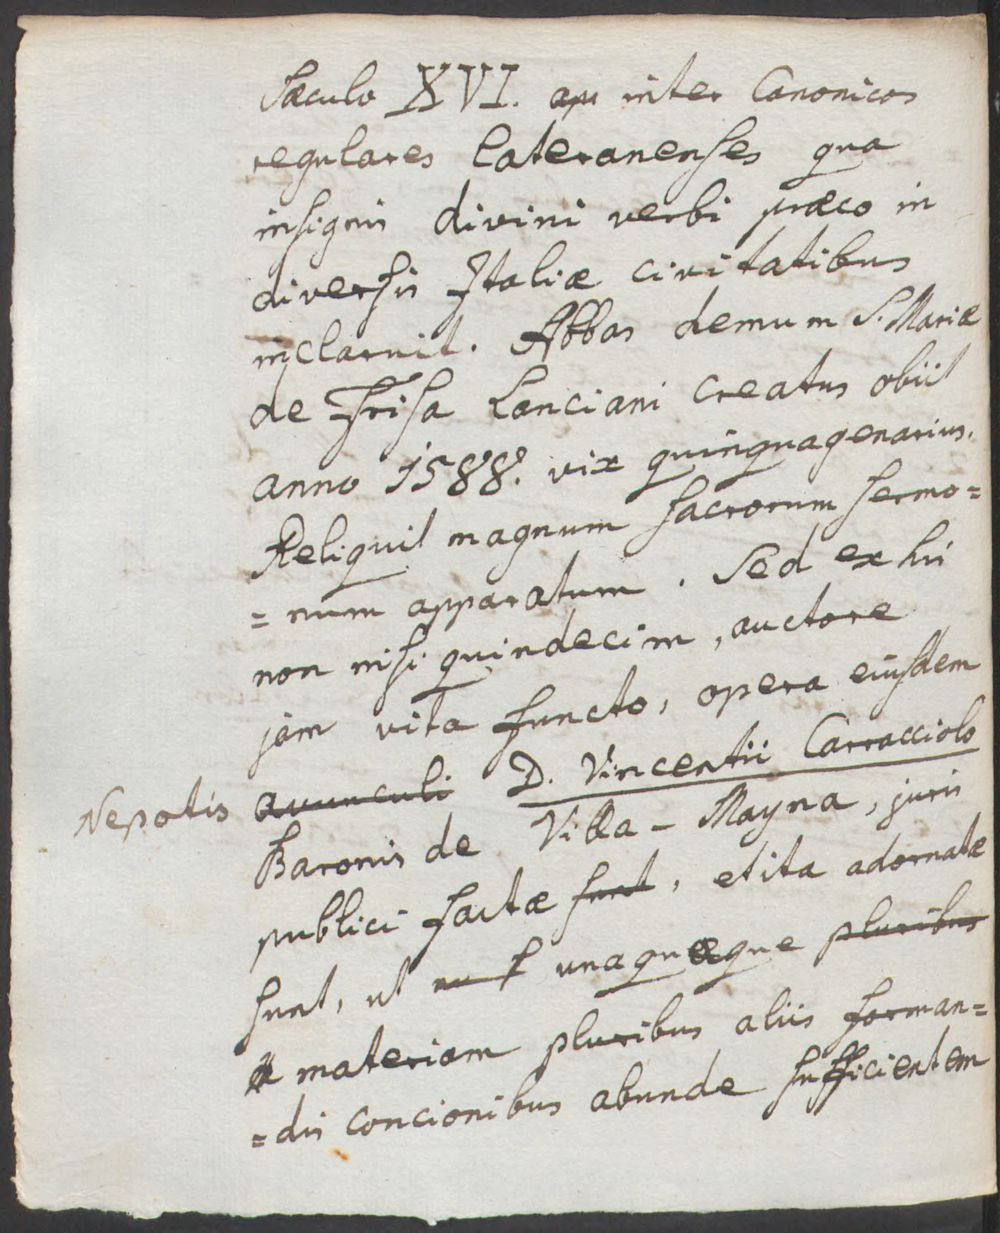 Sæculo XVI. apu inter Canonicos
regulares Lateranenses qua
insignis divini verbi præco in
diversis Italiæ civitatibus
inclaruit. Abbas demum S. Mariæ
de Frisa Lanciani creatus obiit
anno 1588. vix quinquagenarius.
Reliquit magnum sacrorum sermo=
=num apparatum. Sed ex his
non nisi quindecim, auctore
jam vita functo, opera eiusdem
Nepotis avunculi D. Vincentii Carracciolo
Baronis de Villa-Mayna, juris
publici factæ sunt, et ita adornatæ
sunt, ut unaquæque pluribus
materiam pluribus aliis forman=
=dis concionibus abunde sufficientem